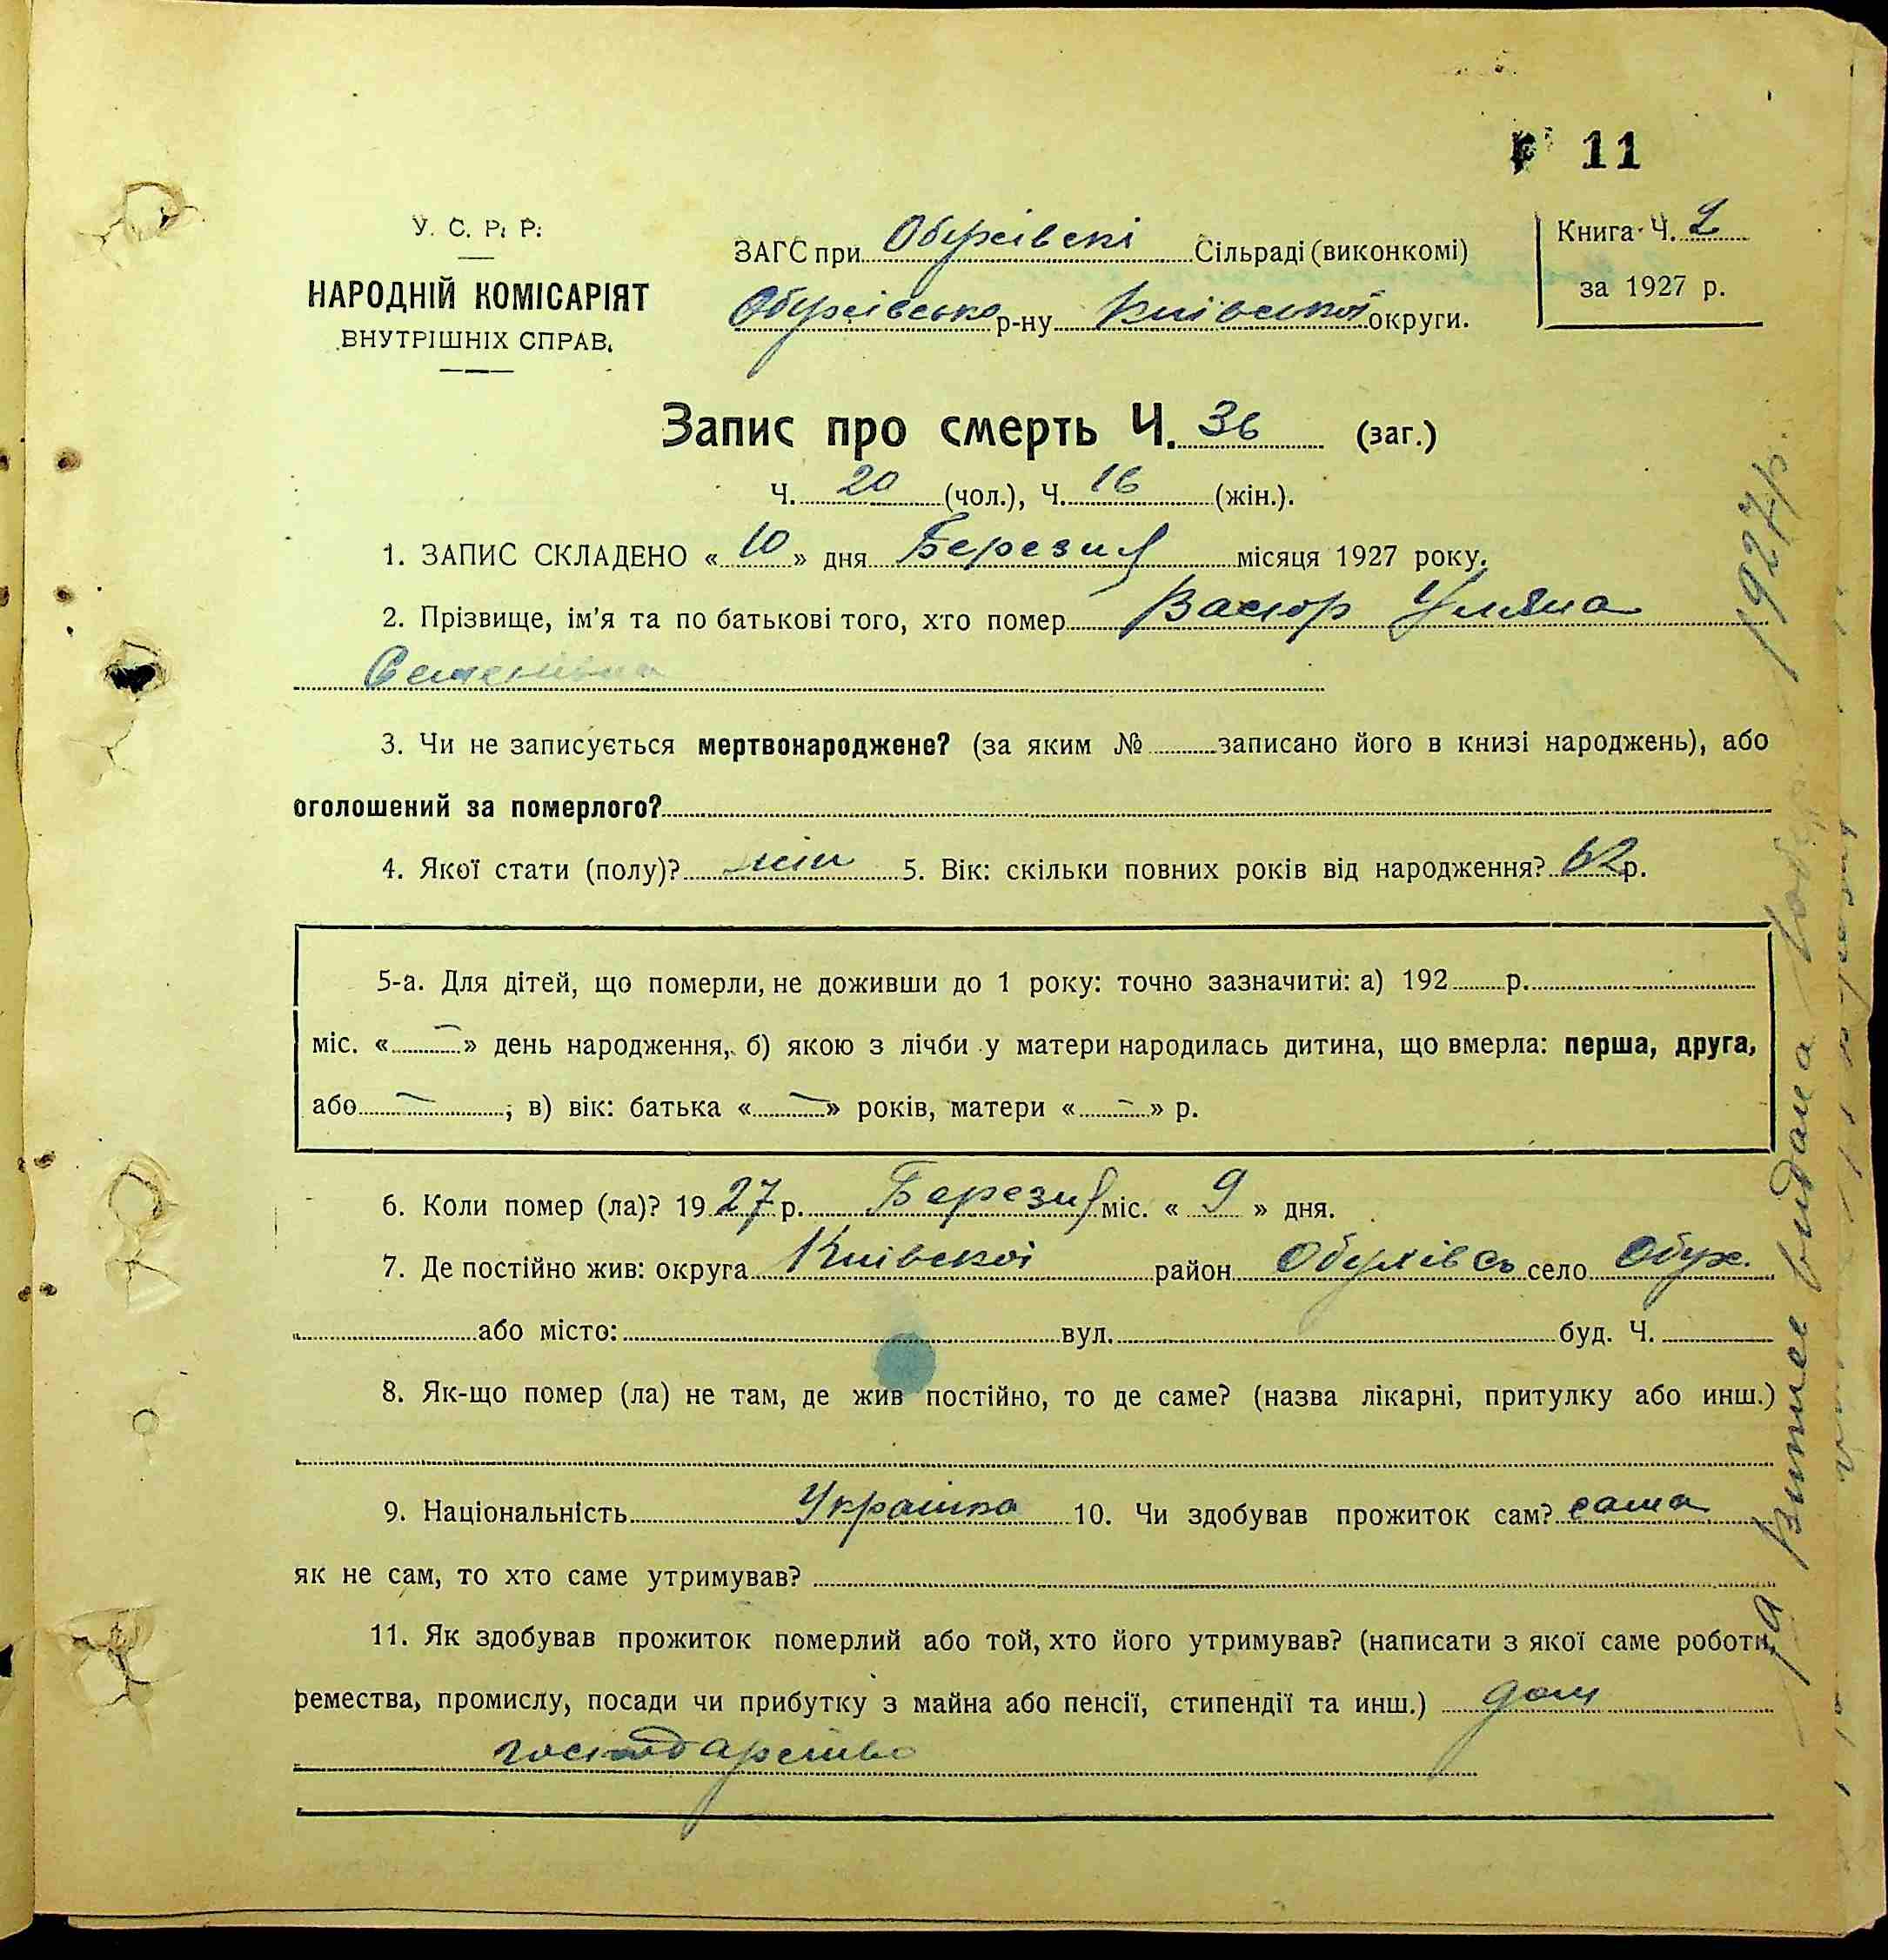 11
У. С. Р. Р.
НАРОДНІЙ КОМІСАРІЯТ
ВНУТРІШНІХ СПРАВ.
ЗАГС при Обухівскі Сільраді (виконкомі)
Обухівсько р-ну Київської округи.
Книга Ч. 2
за 1927 р.
Запис про смерть Ч. 36 (заг.)
Ч. 20 (чол.), Ч. 16 (жін.).
1. ЗАПИС СКЛАДЕНО « 10 » дня Березня місяця 1927 року.
2. Прізвище, ім'я та по батькові того, хто помер Уляна
Семенівна
3. Чи не записується мертвонароджене? (за яким № записано його в книзі народжень), або
оголошений за померлого?
4. Якої стати (полу)? жін 5. Вік: скільки повних років від народження? 62 р.
5-а. Для дітей, що померли, не доживши до 1 року: точно зазначити: а) 192 р.
міс. « — » день народження, б) якою з лічби у матери народилась дитина, що вмерла: перша, друга,
або — ; в) вік: батька « — » років, матери « — » р.
6. Коли помер (ла)? 1927 р. Березня міс. « 9 » дня.
7. Де постійно жив: округа Київскої район Обухівсь село Обух.
або місто: вул. буд. Ч.
8. Як-що помер (ла) не там, де жив постійно, то де саме? (назва лікарні, притулку або инш.)
9. Національність Українка 10. Чи здобував прожиток сам? сама
як не сам, то хто саме утримував?
11. Як здобував прожиток померлий або той, хто його утримував? (написати з якої саме роботи,
ремества, промислу, посади чи прибутку з майна або пенсії, стипендії та инш.) дом
господарство
видана 1927 р.